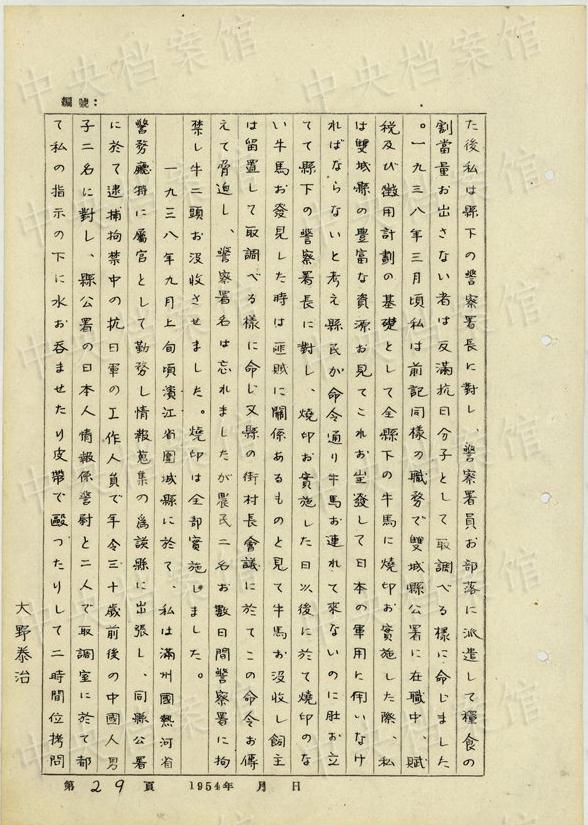 編號：
た後私は縣下の警察署長に對し、警察署員お部落に派遣して糧食の
割當量お出さない者は反滿抗日分子として取調べる樣に命じました
。一九三八年三月頃私は前記同樣の職務で雙城縣公署に在職中、賦
税及び徴用計劃の基礎として全縣下の牛馬に燒印お實施した際、私
は雙城縣の豊富な資源お見てこれお空發して日本の軍用に用いなけ
ればならないと考え縣民が命令通り牛馬お連れて來ないのに肚お立
てて縣下の警察署長に對し、燒印お實施した日以後に於て燒印のな
い牛馬お発見した時は匪賊に關係あるものと見て牛馬お没收し飼主
は留置して取調べる樣に命じ又縣の街村長會議に於てこの命令お傳
えて脅迫し、警察署名は忘れましたが農民二名お数日間警察署に拘
禁し牛二頭お没收させました。燒印は全部實施しました。
一九三八年九月上旬頃濱江省圍城縣に於て、私は滿州國熱河省
警務廳特に屬官として勤務し情報蒐集の為該縣に出張し、同縣公署
に於て逮捕拘禁中の抗日軍の工作人員で年令三十歳前後の中國人男
子二名に對し、縣公署の日本人情報係警尉と二人で取調室に於て都
て私の指示の下に水お呑ませたり皮帶で毆つたりして二時間位拷問
大野泰治
第29頁 1954年 月 日
中央档案馆